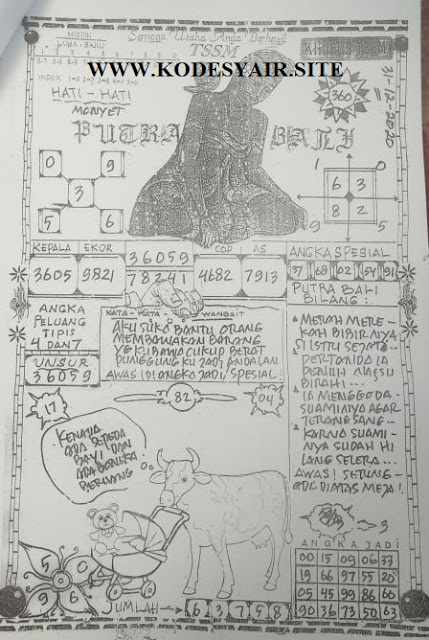 MISTIK
JAMA-BARU
INDEX
HATI - HATI
MONYET
Semoga Usaha Anda Berhasil
TSSM
WWW.KODESYAIR.SITE
360
31-12-2020
PUTRA BALI
0 9
3
5 6
1 0
6 3
8 2
9 5
KEPALA EKOR
3605 9821
36059
78241
COP AS
4682 7913
ANGKA SPESIAL
37 68 02 54 91
PUTRA BALI
BILANG :
ANGKA
PELUANG
TIPIS
4 DAN 7
UNSUR
36059
KATA - KATA WANGSIT
AKU SUKA BANTU ORANG
MEMBAWAKAN BARANG
YG KUBAWA CUKUP BERAT
PUNGGUNG KU JADI ANDALAN
AWAS JADI SPESIAL
MERAH MERE-
KAH BIBIRNYA
SI ISTU
PENUH NAFSU
BIRAHI...
IA MENGGODA
SUAMINYA AGAR
TERANGSANG..
KARNA SUAMI-
NYA SUDAH HI
LANG SELERA...
AWAS!
ADA DIATAS MEJA!
17
82
04
KENAPA
ADA SEPEDA
BAYI DAN
ADA BONEKA
BERUANG
3
ANGKA JADI
00 15 09 06 33
19 66 97 55 20
05 45 99 86 60
90 36 73 50 63
5 0
9 6
JUMLAH → 6 3 7 5 8